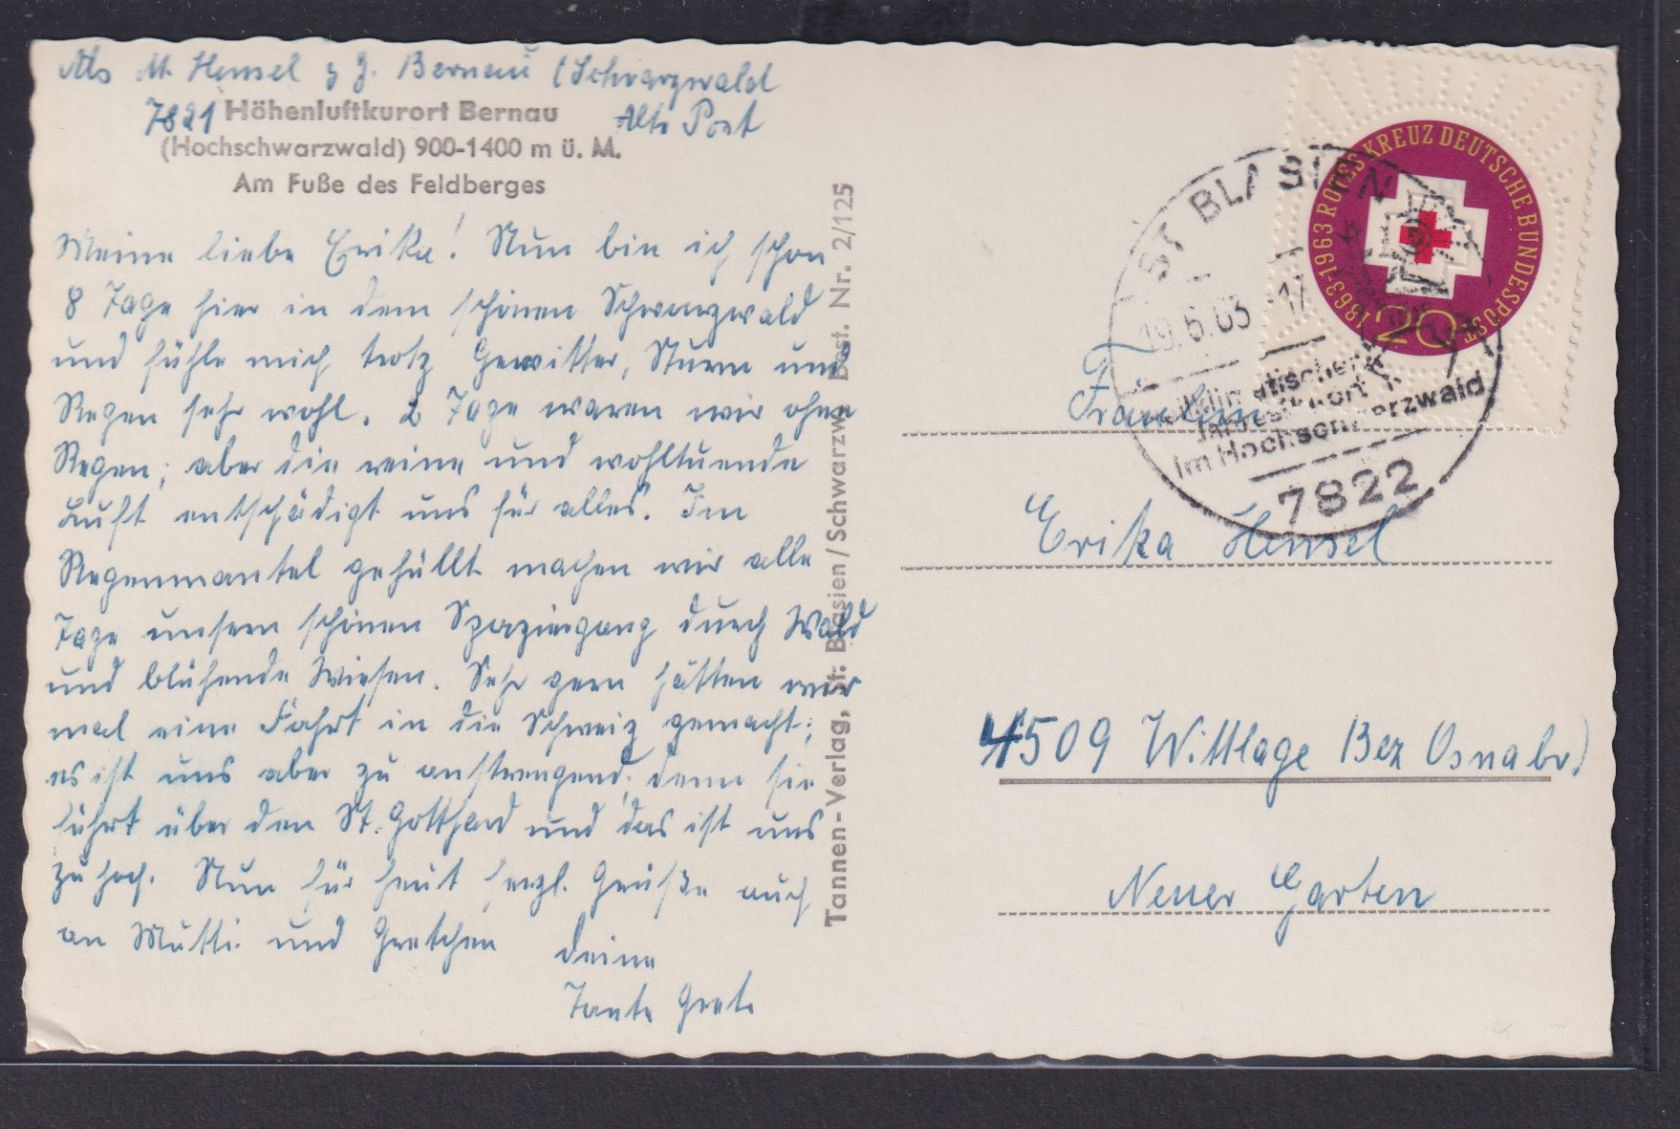 Abs M. Hensel z. Z. Bernau (Schwarzwald
7821 Alte Post
Höhenluftkurort Bernau
(Hochschwarzwald) 900-1400 m ü. M.
Am Fuße des Feldberges
Meine liebe Erika! Nun bin ich schon
8 Tage hier in dem schönen Schwarzwald
und fühle mich trotz Gewitter, Sturm und
Regen sehr wohl. 2 Tage waren wir ohne
Regen; aber die reine und wohltuende
Luft entschädigt uns für alles. Im
Regenmantel gehüllt machen wir alle
Tage unsern schönen Spaziergang durch Wald
und blühende Wiesen. Sehr gern hätten wir
mal eine Fahrt in die Schweiz gemacht;
es ist uns aber zu anstrengend, denn sie
führt über den St. Gotthard und das ist uns
zu hoch. Nun für heut herzl. Grüße auch
an Mutti und Gretchen deine
Tante Grete
Tannen-Verlag, St. Blasien / Schwarzw. Best. Nr. 2/125
1863·1963 ROTES KREUZ DEUTSCHE BUNDESPOST
20
ST BLASIEN
19.6.63 -17
Klimatischer
Jahreskurort
im Hochschwarzwald
7822
Fräulein
Erika Hensel
4509 Wittlage Bez Osnabr)
Neuer Garten